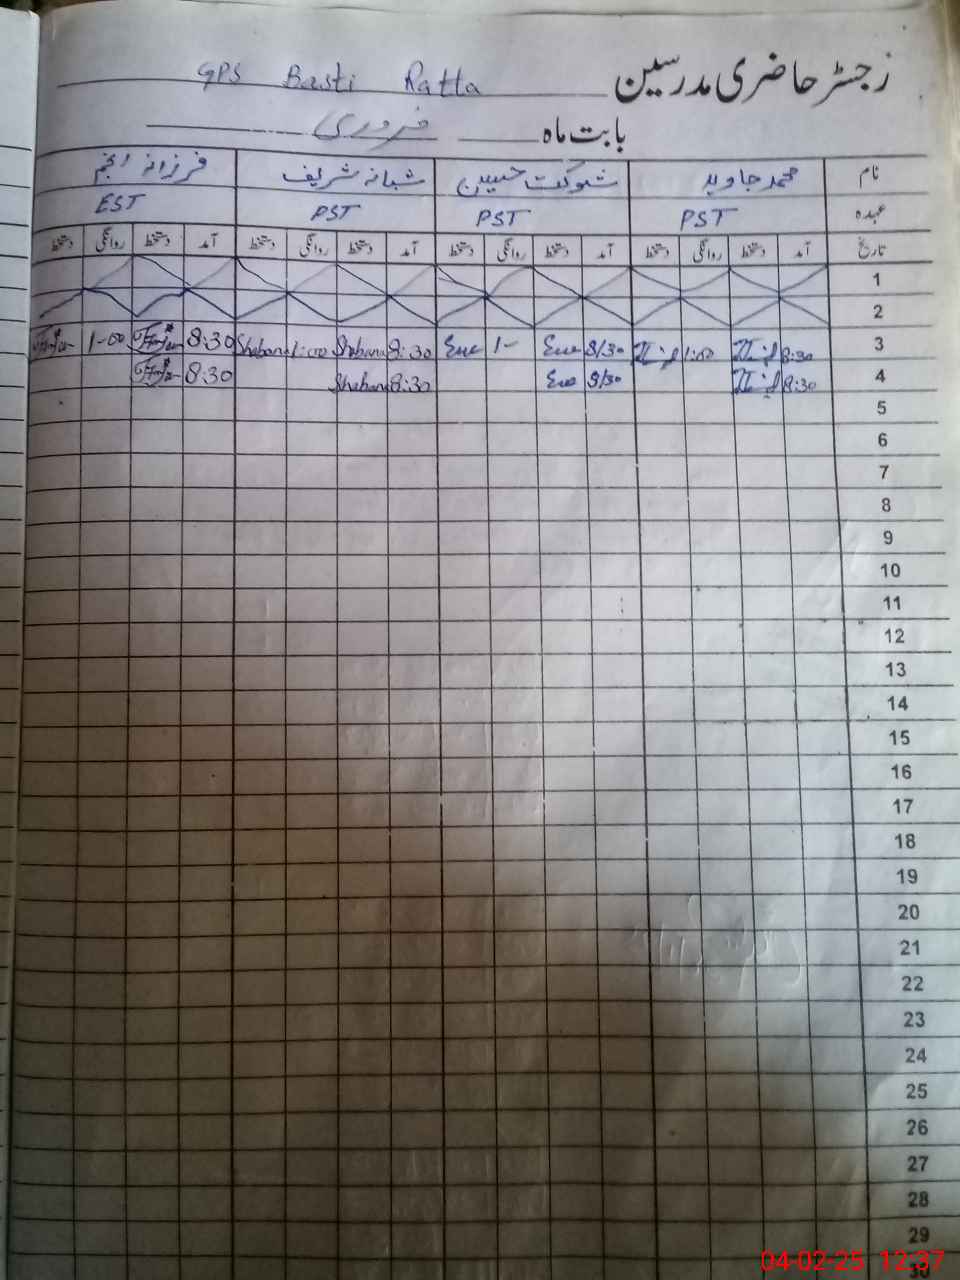 رجسٹر حاضری مدرسین GPS Basti Ratta
بابت ماہ فروری
نام محمد جاوید شوکت حسین شبانہ شریف فرزانہ انجم
عہدہ PST PST PST EST
تاریخ آمد دستخط روانگی دستخط آمد دستخط روانگی دستخط آمد دستخط روانگی دستخط آمد دستخط روانگی دستخط
1
2
3 8:30 1:00 8/30 1- 8:30 Shabana 1:00 Shabana 8:30 1-00
4 8:30 8/30 8:30 Shabana 8:30
5
6
7
8
9
10
11
12
13
14
15
16
17
18
19
20
21
22
23
24
25
26
27
28
29
30
04-02-25 12:37